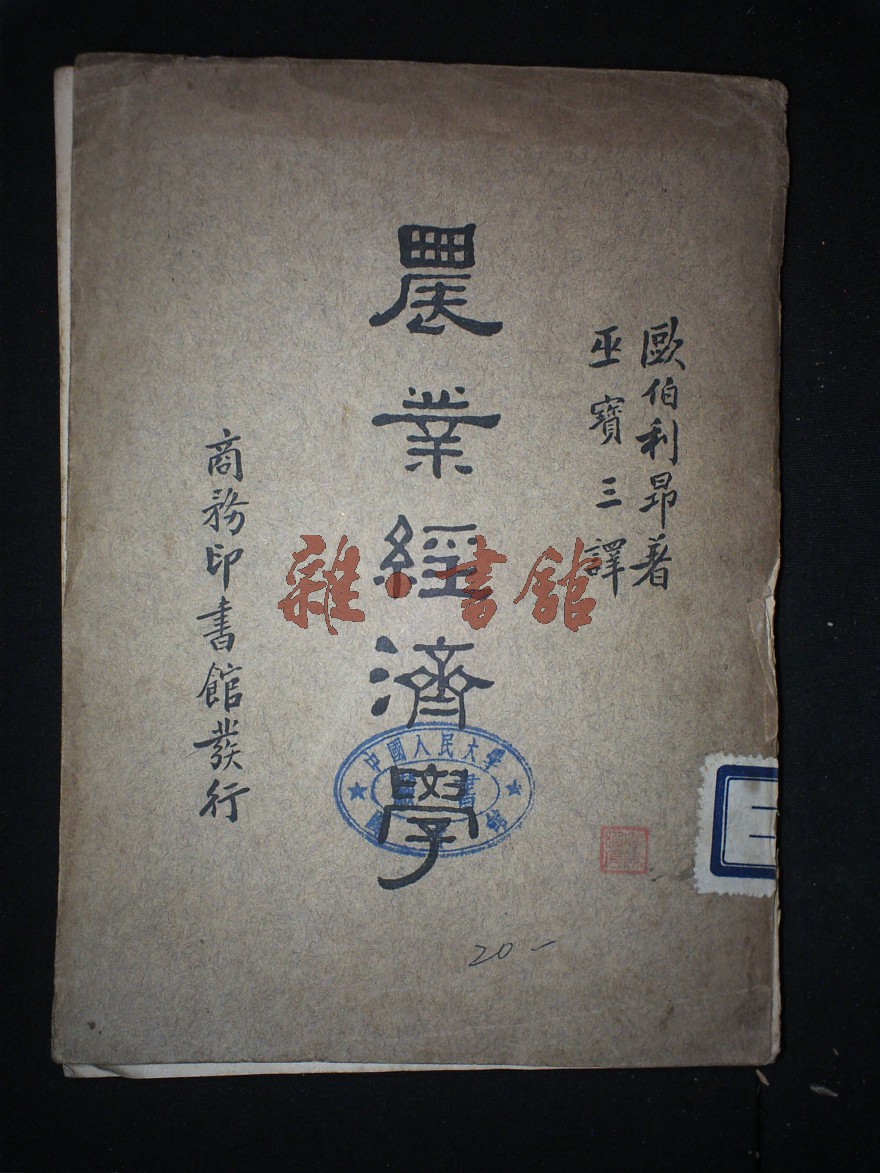 歐伯利昂著
巫寶三譯
農業經濟學
商務印書館發行
雜·書館
中國人民大學
圖書館
20-
二